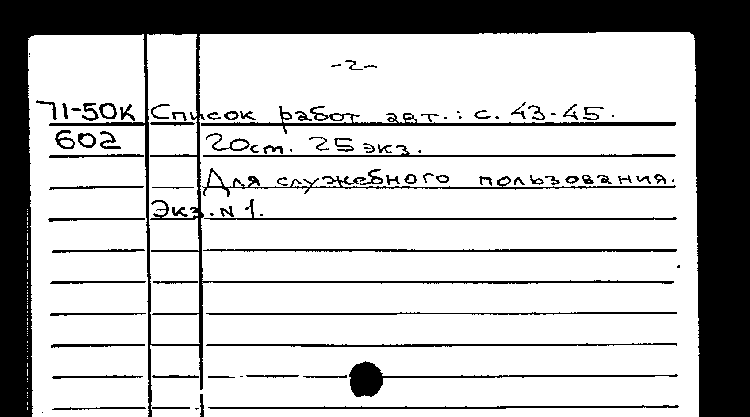 -2-
71-50К Список работ авт.: с. 43-45.
602 20см. 25 экз.
Для служебного пользования.
Экз. N 1.